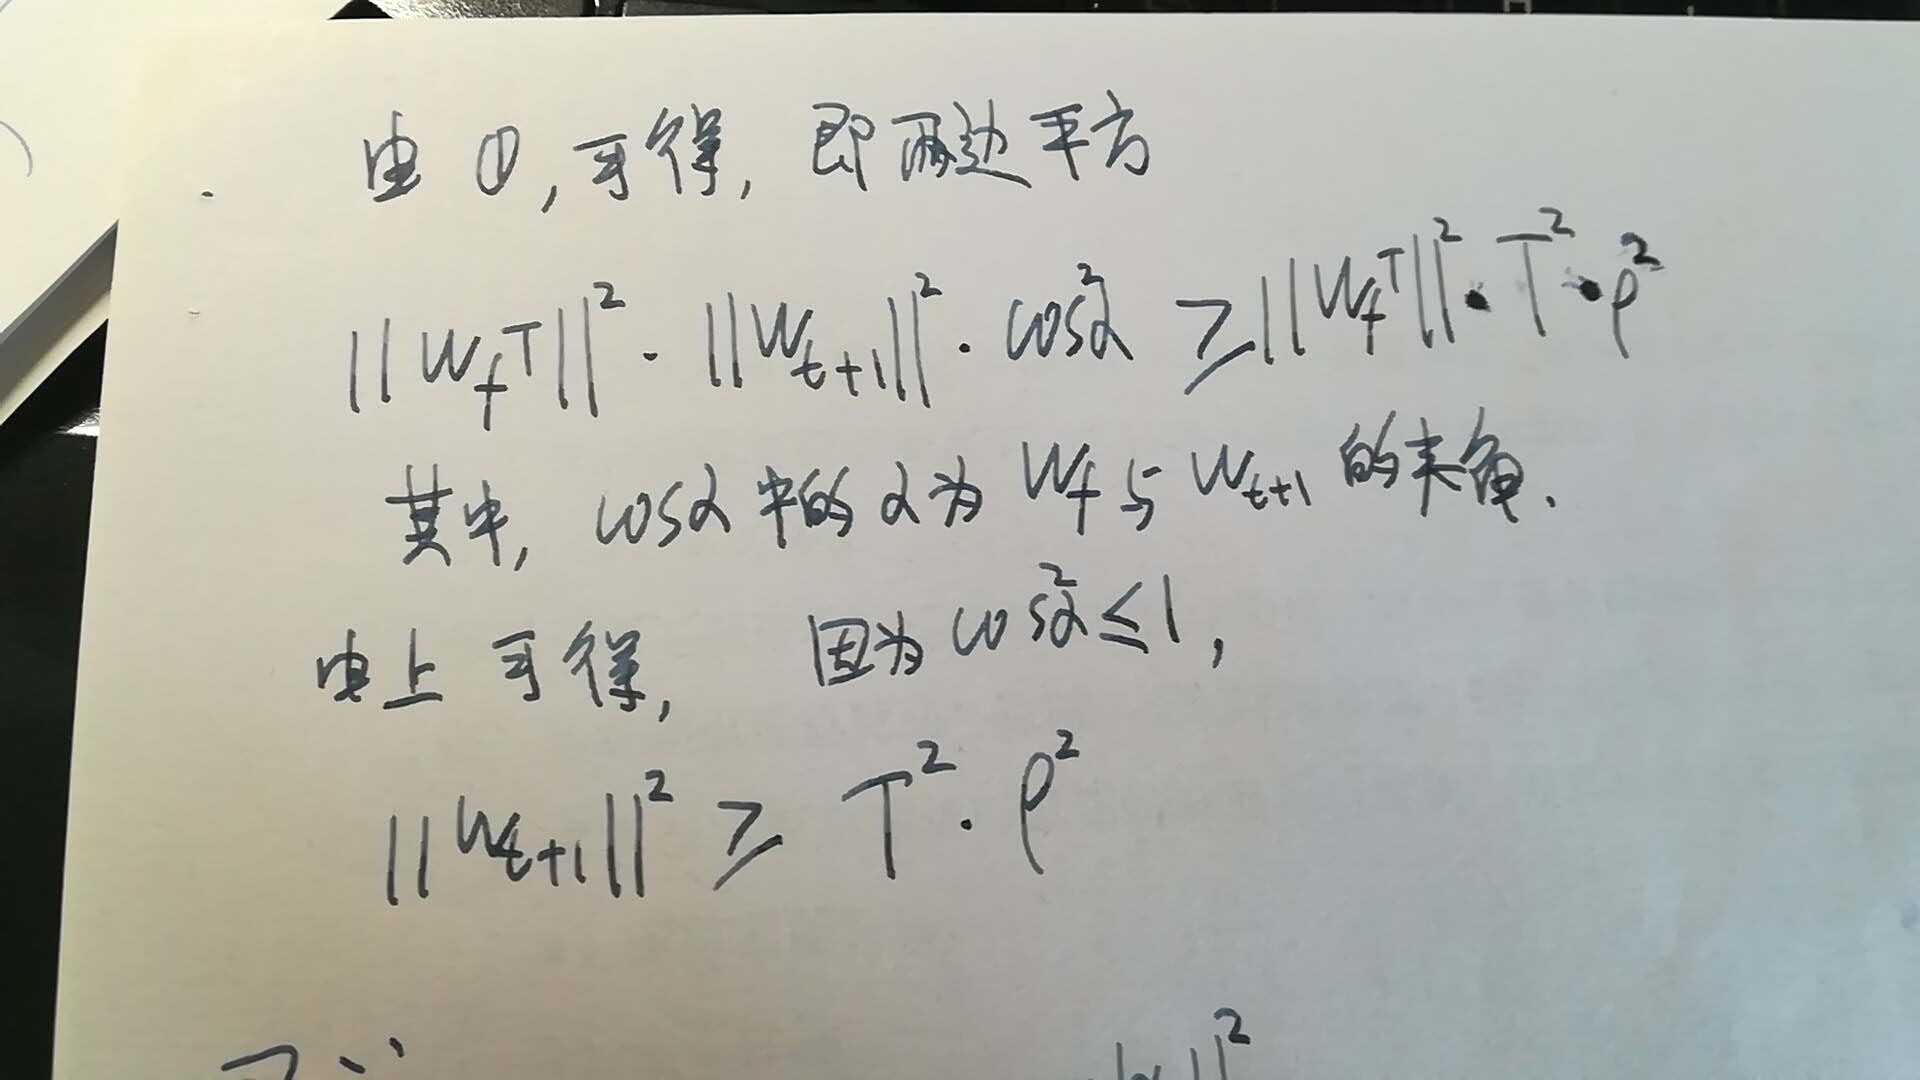 由①,可得,即两边平方
||W_f^T||² · ||W_{t+1}||² · cos²α ≥ ||W_f^T||² · T² · ρ²
其中, cosα中的α为W_f与W_{t+1}的夹角.
由上可得, 因为cos²α≤1,
||W_{t+1}||² ≥ T² · ρ²